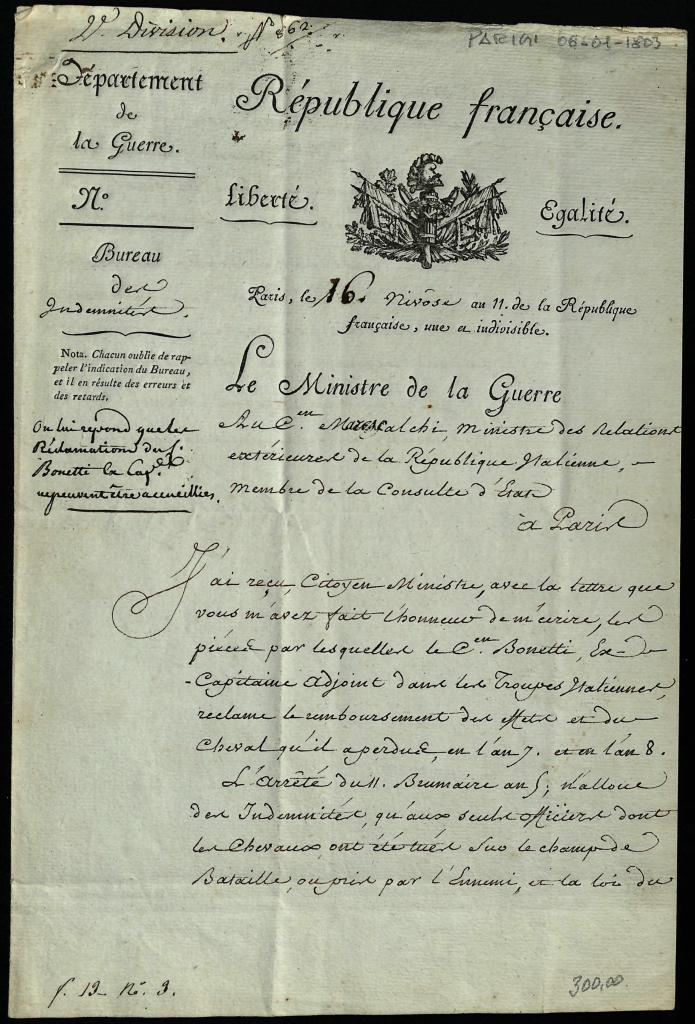 2e. Division. N° 862.
PARIGI 06-01-1803
Département
de
la Guerre.
N.°
Bureau
des
Indemnités.
Nota. Chacun oublie de rap-
peler l'indication du Bureau,
et il en résulte des erreurs et
des retards.
On lui répond que les
Réclamations du S.r
Bonetti la Cap.e
ne peuvent être accueillies.
République française.
Liberté.
Egalité.
Paris, le 16. Nivôse an 11. de la République
française, une et indivisible.
Le Ministre de la Guerre
Au C.en Marescalchi, ministre des Relations
extérieures de la République Italienne, -
membre de la Consulte d'État
à Paris
J'ai reçu, Citoyen Ministre, avec la lettre que
vous m'avez fait l'honneur de m'écrire, les
pièces par lesquelles le C.en Bonetti, Ex-
-Capitaine adjoint dans les Troupes Italiennes,
réclame le remboursement des effets et du
Cheval qu'il a perdus, en l'an 7. et en l'an 8.
L'Arrêté du 11. Brumaire an 5, n'alloue
des Indemnités, qu'aux seuls officiers dont
les Chevaux ont été tués sur le champ de
Bataille, ou pris par l'Ennemi, et la loi du
f. 13 - N.° 3.
300,00